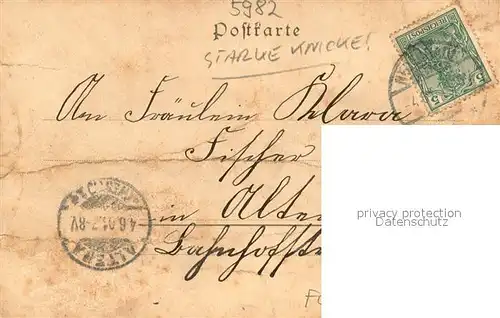 5982
Postkarte
STARKE KNICKE!
An Fräulein Klara
Fischer
in Alte
Bahnhofstr
privacy protection
Datenschutz